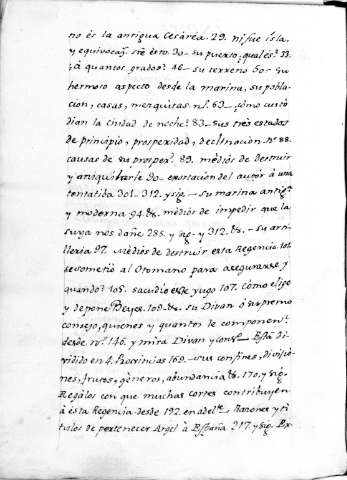 no és la antigua Cesárea. 29. ni fue isla,
y equivocaz.ⁿ sre ésto. 30 - su puerto, qual és? 33.
¿à quantos grados? 46 - su terreno 50 - su
hermoso aspecto desde la marina, su pobla-
cion, casas, mezquitas nº. 63 - ¿cómo custo
dian la ciudad de noche? 83 - sus três estados
de principio, prosperidad, declinacion. nº 88.
causas de su prosper.ᵈ 89. médiòs de destruir
y aniquilarle 90 - exortacion del autòr à una
tentatiba 301 - 312. y sig.ˢ - su marina antig.ᵃ
y moderna. 94. &. médios de impedir que la
suya nos dañe 285. y sig.ˢ - y 312. &. - su arti-
llería 97. Médios de destruir esta Regencia 101.
se sometió al Otomano para asegurarse y
quando? 105. sacudio ese yugo 107. cómo elije
y depone Deyes. 109. &. su Divan ò supremo
consejo, quienes y quantos le componen?
desde nº. 146. y mira Divan y cons.º Está di-
vidido en 4. Provincias 169. - sus confines, divisio-
nes, frutos, géneros, abundancia &. 170. y sig.ˢ
Regálos con que muchas cortes contribuyen
à ésta Regencia desde 192. en adel.ᵗᵉ Razones y ti-
tulos de pertenecer Argel à España 217. y sig.ˢ Ex-